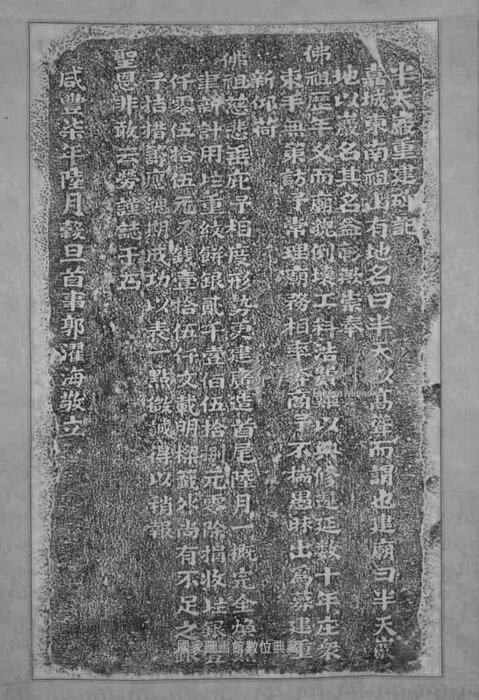 半天巖重建碑記
嘉城東南祖山有地名曰半天以高聳而謂也建廟曰半天巖
地以巖名其名益彰崇奉
佛祖歷年久而廟貌倒壞工料浩難以興修延數十年庄衆
束手無策訪予常理廟務相率予不揣愚昧出為募建重
新仰荷
佛祖慈悲垂庇予相度形勢更建廣造首尾陸月一概完全煥然
事辦計用出重紋餅銀貳千壹佰伍拾捌元零除捐收註銀
仟零伍拾伍元又錢壹拾伍仟文載明樑籤外尚有不足之銀
予拮据應總期成功以表一點微誠得以稍報
聖恩非敢云勞謹誌于石
咸豐柒年陸月穀旦首事郭濯海敬立
國家圖書館數位典藏